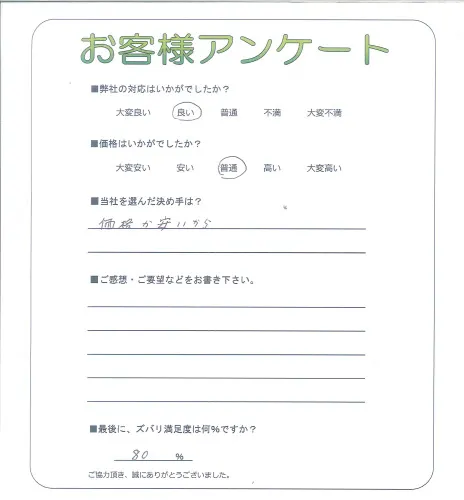 お客様アンケート
■弊社の対応はいかがでしたか？
大変良い 良い 普通 不満 大変不満
■価格はいかがでしたか？
大変安い 安い 普通 高い 大変高い
■当社を選んだ決め手は？
価格が安いから
■ご感想・ご要望などをお書き下さい。
■最後に、ズバリ満足度は何%ですか？
80 %
ご協力頂き、誠にありがとうございました。